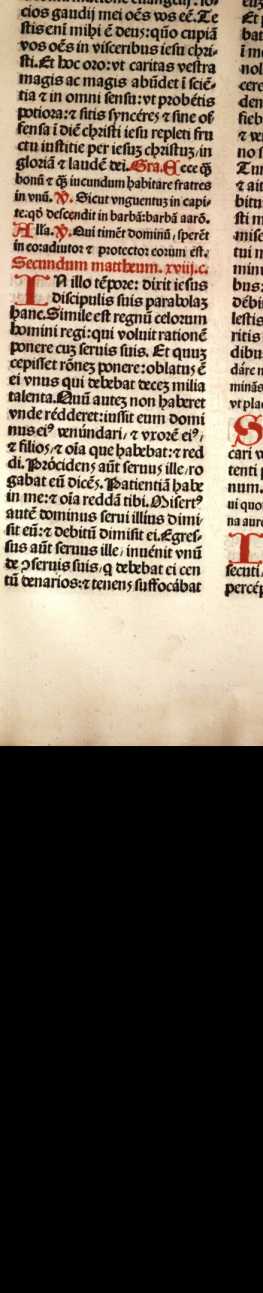 cios gaudij mei oēs vos eē. Te
stis enī mihi ē deus: qūo cupiā
vos oēs in visceribus iesu chri-
sti. Et hoc oro: vt caritas vestra
magis ac magis abūdet ī sciē-
tia ⁊ in omni sensu: vt probétis
potiora: ⁊ sitis syncéreȝ ⁊ sine of
fensa ī diē christi iesu repleti fru
ctu iustitie per iesuȝ christuȝ, in
gloriā ⁊ laudē dei. Gra. Ecce qȝ̄
bonū ⁊ qȝ̄ iucundum habitare fratres
in vnū. ℣. Sicut vnguentuȝ in capi-
te: qd̓ descendit in barbā: barbā aarō.
Alla. ℣. Qui timēt dominū, sperēt
in eo: adiutor ⁊ protector eorum ēst.
Secundum mattheum. xviij. c.
IN illo tēpore: dixit iesus
discipulis suis parabolaȝ
hanc. Simile est regnū celorum
homini regi: qui voluit rationē
ponere cuȝ seruis suis. Et quuȝ
cepisset rōneȝ ponere: oblatus ē
ei vnus qui debebat deceȝ milia
talenta. Quū auteȝ non haberet
vnde rédderet: iussit eum domi
nus eiꝰ venúndari, ⁊ vxorē eiꝰ,
⁊ filios, ⁊ oīa que habebat: ⁊ red
di. Prócidens aūt seruus ille, ro
gabat eū dicēs. Patientiā habe
in me: ⁊ oīa reddā tibi. Misertꝰ
autē dominus serui illíus dimi-
sit eū: ⁊ debitū dimisit ei. Egres-
sus aūt seruus ille, inuénit vnū
de ꝯseruis suis, q debebat ei cen
tū denarios: ⁊ tenens suffocábat
secuti
percép